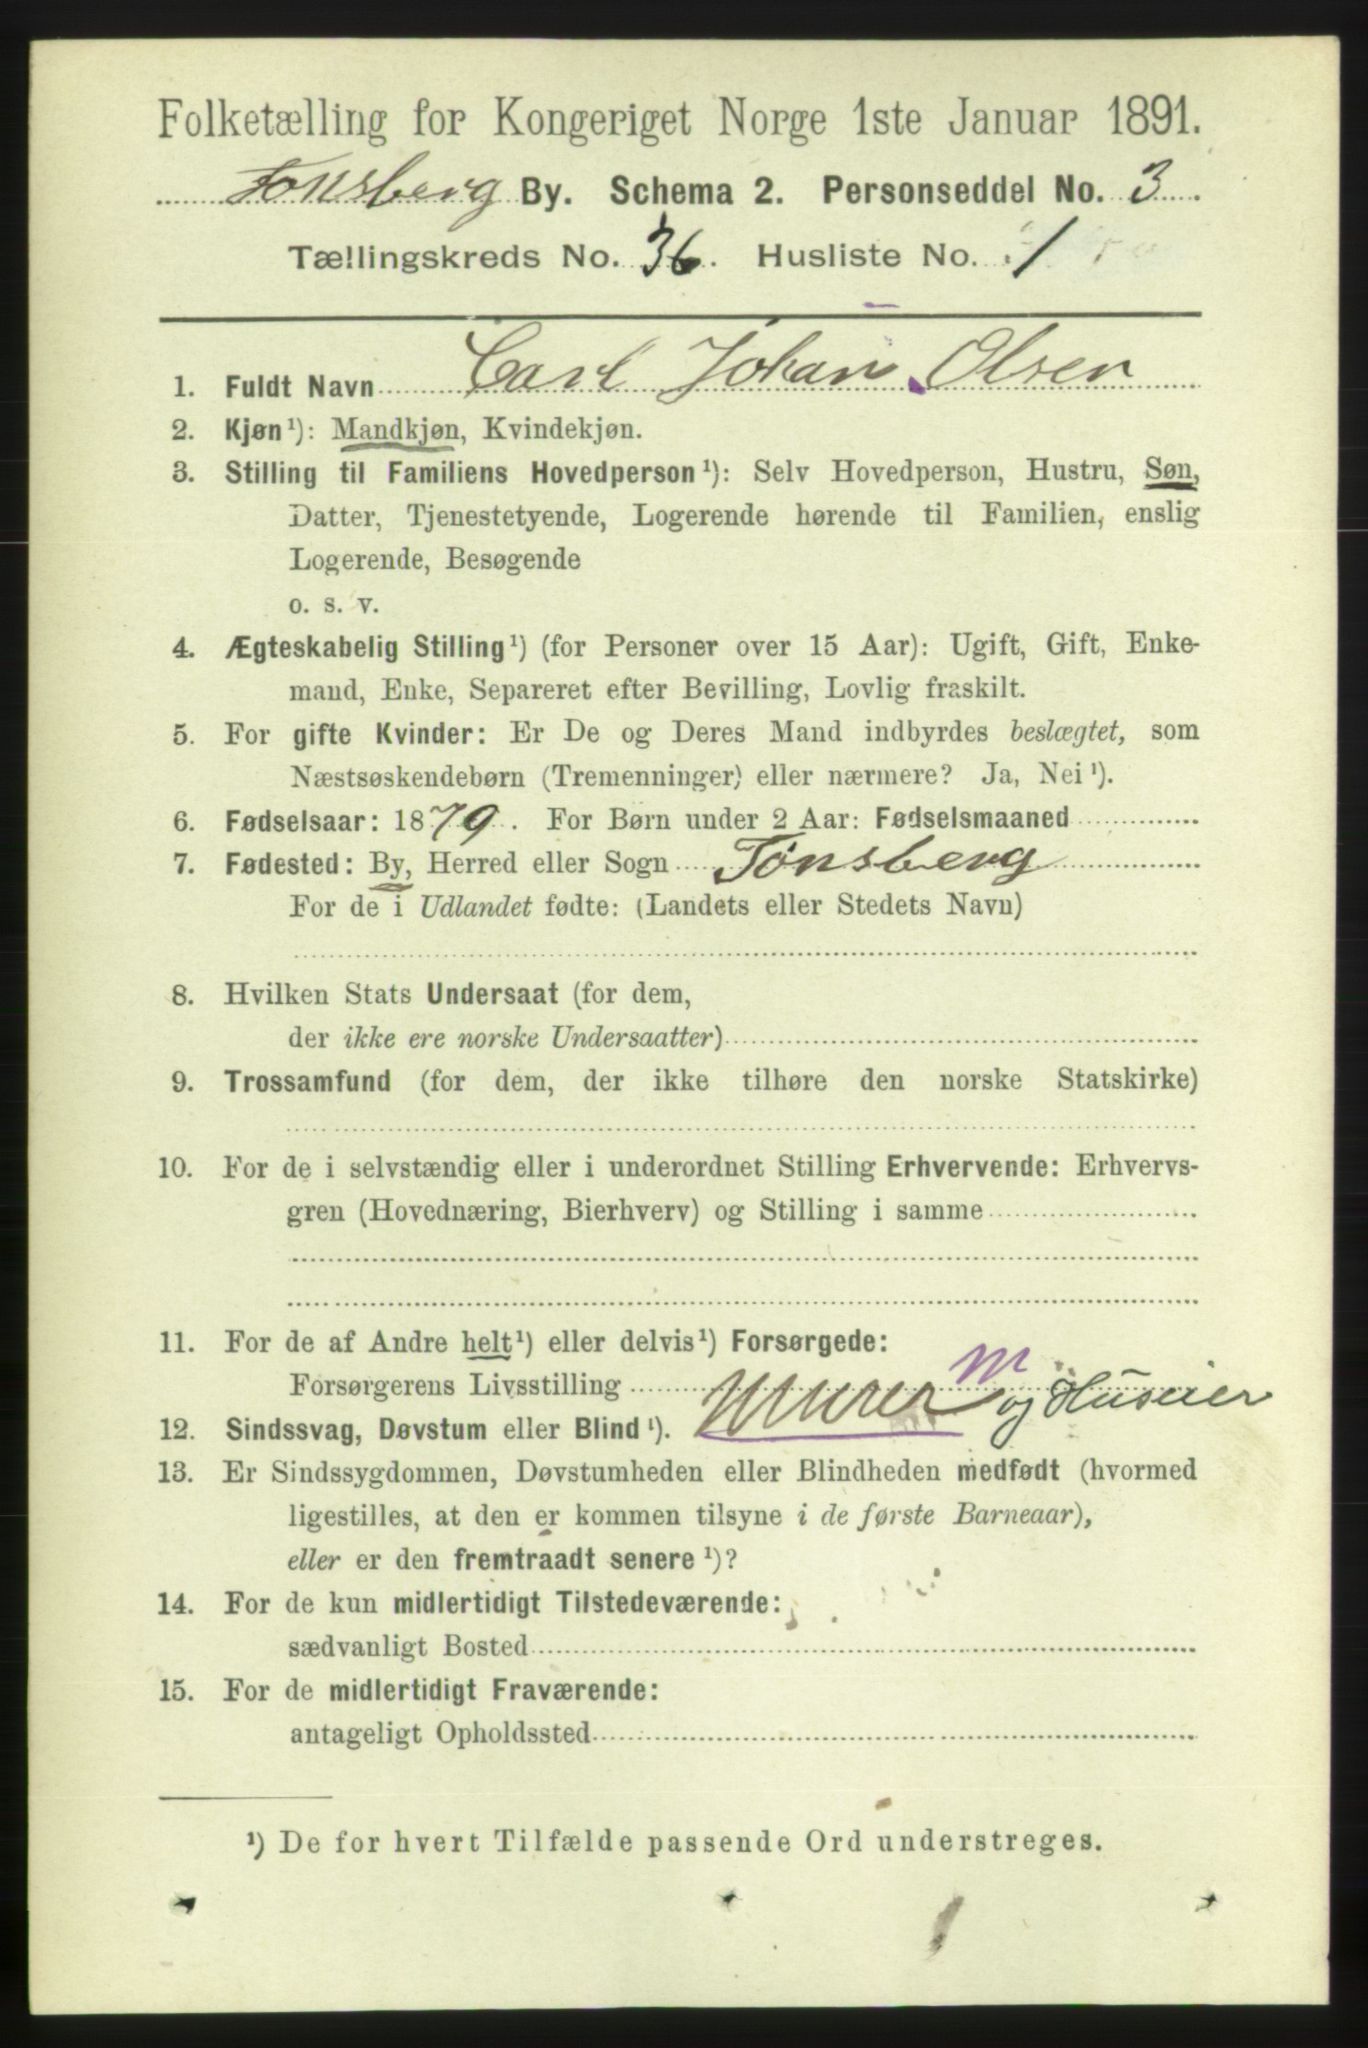 Folketælling for Kongeriget Norge 1ste Januar 1891.
Tønsberg By. Schema 2. Personseddel No. 3.
Tællingskreds No. 36. Husliste No. 1
1. Fuldt Navn Carl Johan Olsen
2. Kjøn¹): Mandkjøn, Kvindekjøn.
3. Stilling til Familiens Hovedperson¹): Selv Hovedperson, Hustru, Søn,
Datter, Tjenestetyende, Logerende hørende til Familien, enslig
Logerende, Besøgende
o. s. v.
4. Ægteskabelig Stilling¹) (for Personer over 15 Aar): Ugift, Gift, Enke-
mand, Enke, Separeret efter Bevilling, Lovlig fraskilt.
5. For gifte Kvinder: Er De og Deres Mand indbyrdes beslægtet, som
Næstsøskendebørn (Tremenninger) eller nærmere? Ja, Nei¹).
6. Fødselsaar: 1879. For Børn under 2 Aar: Fødselsmaaned
7. Fødested: By, Herred eller Sogn Tønsberg
For de i Udlandet fødte: (Landets eller Stedets Navn)
8. Hvilken Stats Undersaat (for dem,
der ikke ere norske Undersaatter)
9. Trossamfund (for dem, der ikke tilhøre den norske Statskirke)
10. For de i selvstændig eller i underordnet Stilling Erhvervende: Erhvervs-
gren (Hovednæring, Bierhverv) og Stilling i samme
11. For de af Andre helt¹) eller delvis¹) Forsørgede:
m
Forsørgerens Livsstilling Murer og Huseier
12. Sindssvag, Døvstum eller Blind¹).
13. Er Sindssygdommen, Døvstumheden eller Blindheden medfødt (hvormed
ligestilles, at den er kommen tilsyne i de første Barneaar),
eller er den fremtraadt senere¹)?
14. For de kun midlertidigt Tilstedeværende:
sædvanligt Bosted
15. For de midlertidigt Fraværende:
antageligt Opholdssted
¹) De for hvert Tilfælde passende Ord understreges.